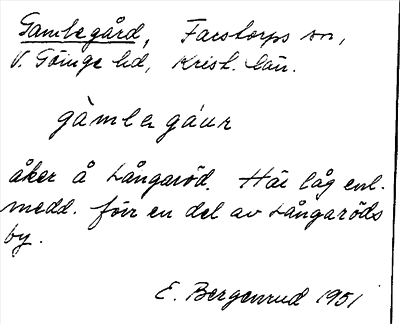 Gamlegård, Farstorps sn,
V. Göinge hd, Krist. län.
gàmle gáur
åker å Långaröd. Här låg enl.
medd. förr en del av Långaröds
by.
E. Bergenrud 1951